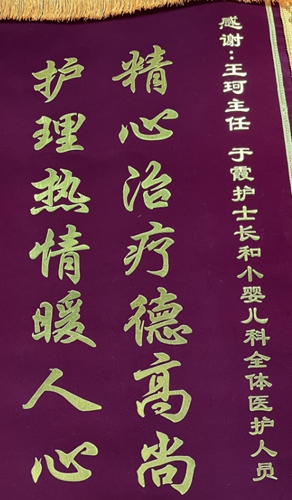 感谢：王珂主任 于霞护士长和小婴儿科全体医护人员
精心治疗德高尚
护理热情暖人心